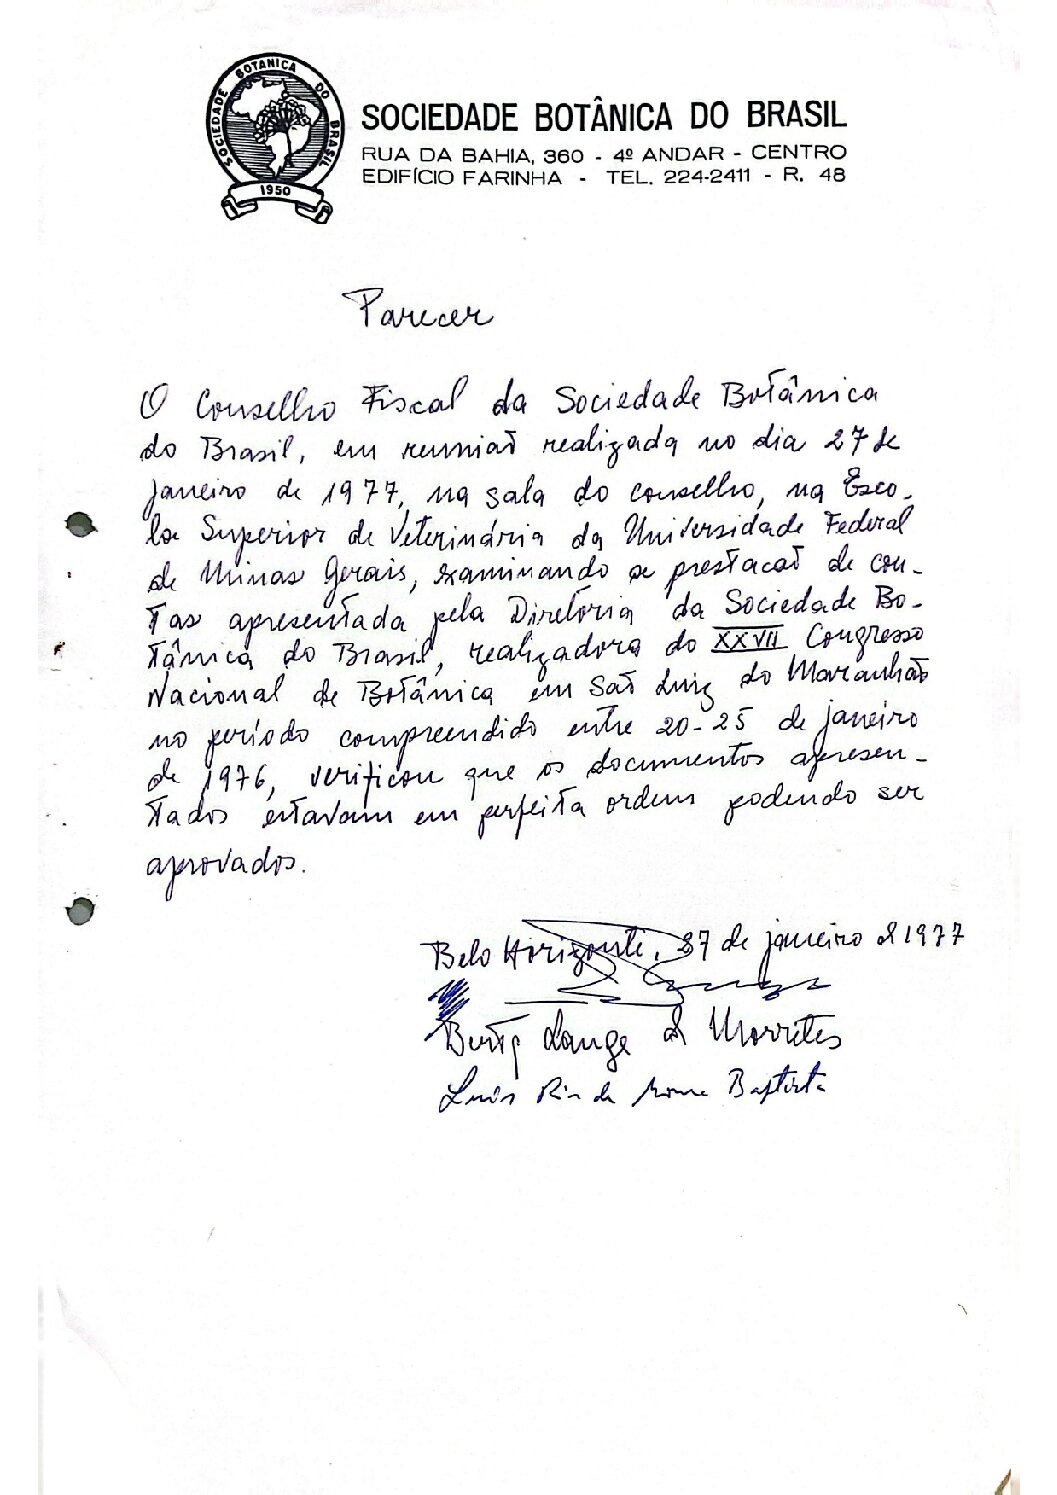 SOCIEDADE BOTANICA DO BRASIL
1950
SOCIEDADE BOTÂNICA DO BRASIL
RUA DA BAHIA, 360 - 4º ANDAR - CENTRO
EDIFÍCIO FARINHA - TEL. 224-2411 - R. 48
Parecer
O Conselho Fiscal da Sociedade Botânica
do Brasil, em reuniaõ realizada no dia 27 de
janeiro de 1977, na sala do conselho, na Esco-
la Superior de Veterinária da Universidade Federal
de Minas Gerais, examinando a prestacaõ de con-
tas apresentada pela Diretoria da Sociedade Bo-
tânica do Brasil, realizadora do XXVII Congresso
Nacional de Botânica em Saõ Luiz do Maranhão
no período compreendido entre 20-25 de janeiro
de 1976, verificou que os documentos apresen-
tados estavam em perfeita ordem podendo ser
aprovados.
Belo Horizonte, 27 de janeiro de 1977
Berta Lange de Morretes
Luis Rios de Moura Baptista